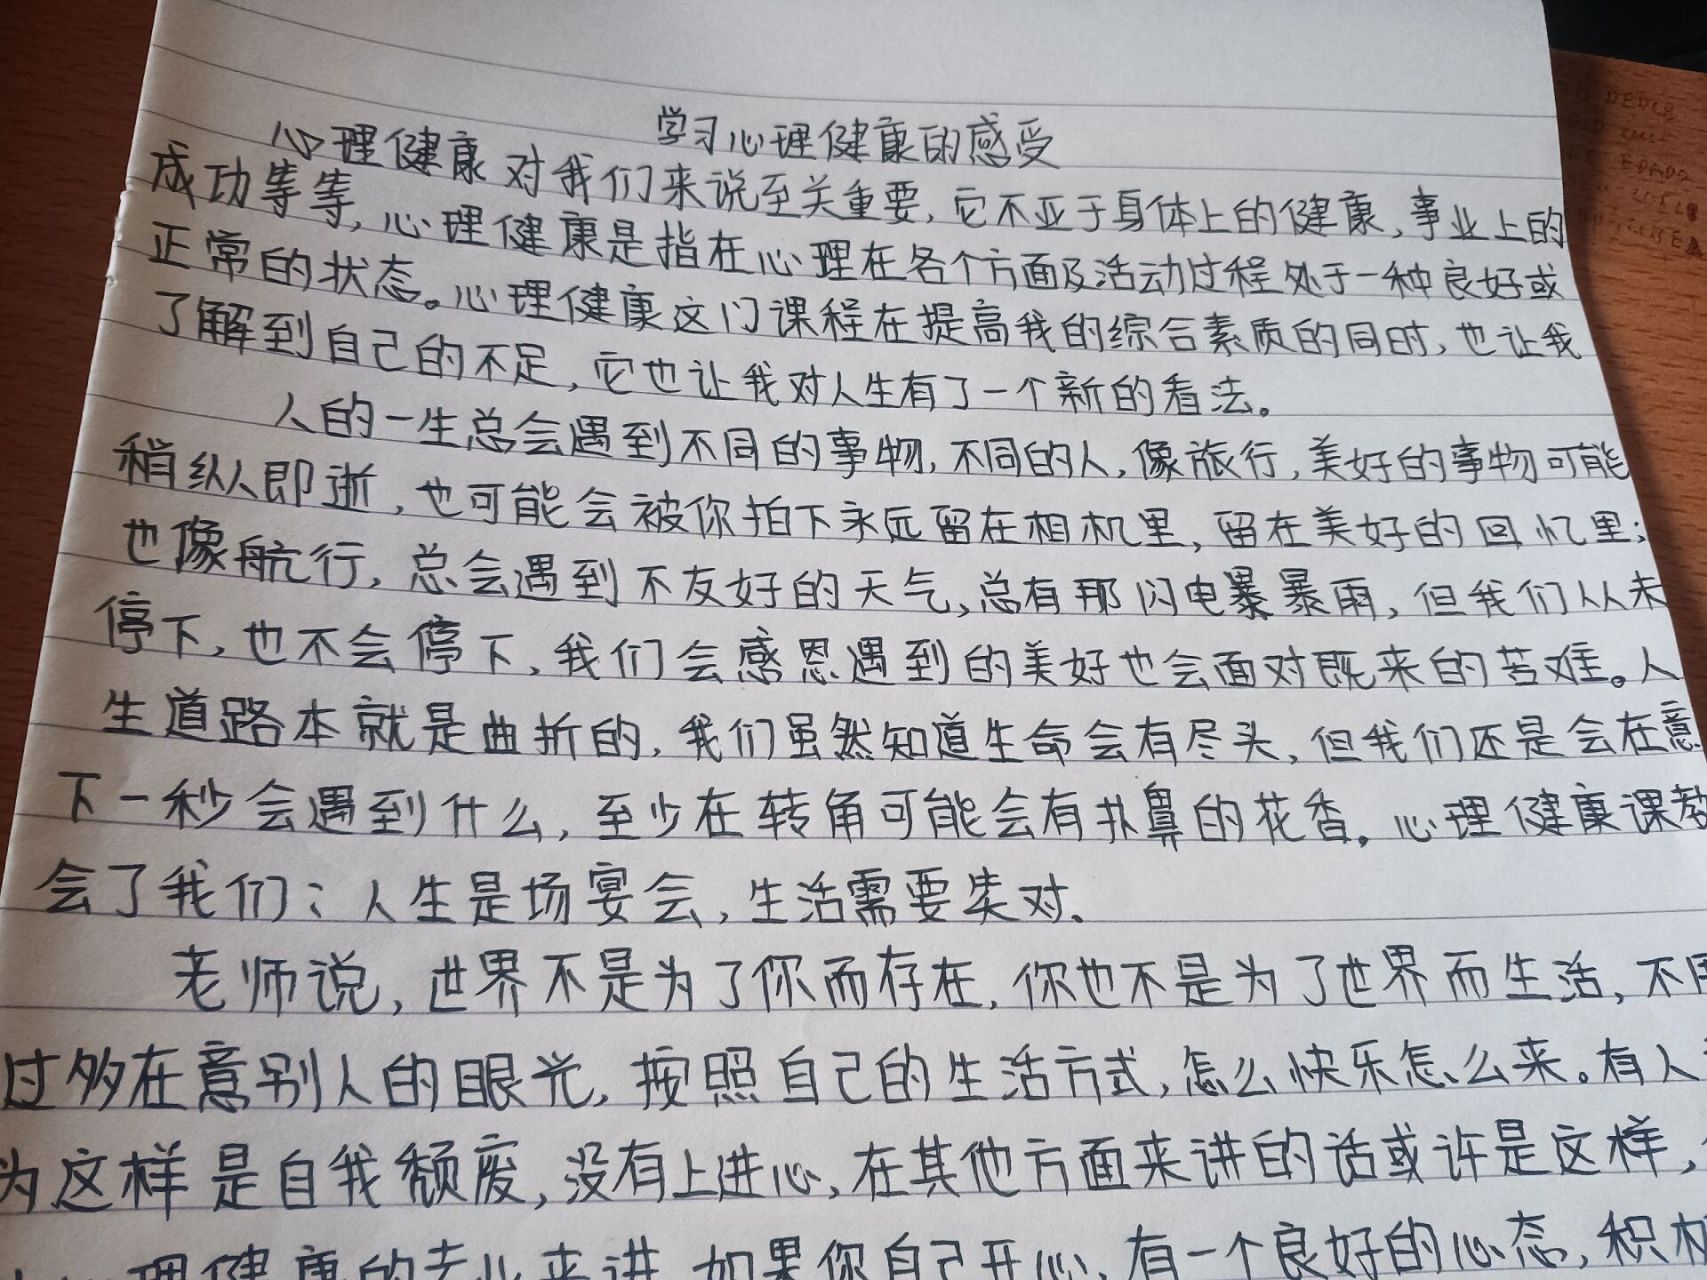 学习心理健康的感受
心理健康对我们来说至关重要，它不亚于身体上的健康、事业上的
成功等等，心理健康是指在心理在各个方面及活动过程处于一种良好或
正常的状态。心理健康这门课程在提高我的综合素质的同时，也让我
了解到自己的不足，它也让我对人生有了一个新的看法。
人的一生总会遇到不同的事物，不同的人，像旅行，美好的事物可能
稍纵即逝，也可能会被你拍下永远留在相机里，留在美好的回忆里；
也像航行，总会遇到不友好的天气，总有那闪电暴暴雨，但我们从未
停下，也不会停下，我们会感恩遇到的美好也会面对既来的苦难。人
生道路本就是曲折的，我们虽然知道生命会有尽头，但我们还是会在意
下一秒会遇到什么，至少在转角可能会有扑鼻的花香。心理健康课教
会了我们：人生是场宴会，生活需要面对。
老师说，世界不是为了你而存在，你也不是为了世界而生活，不用
过多在意别人的眼光，按照自己的生活方式，怎么快乐怎么来。有人
为这样是自我颓废，没有上进心，在其他方面来讲的话或许是这样，
理健康的专业来讲，如果你自己开心，有一个良好的心态，积极